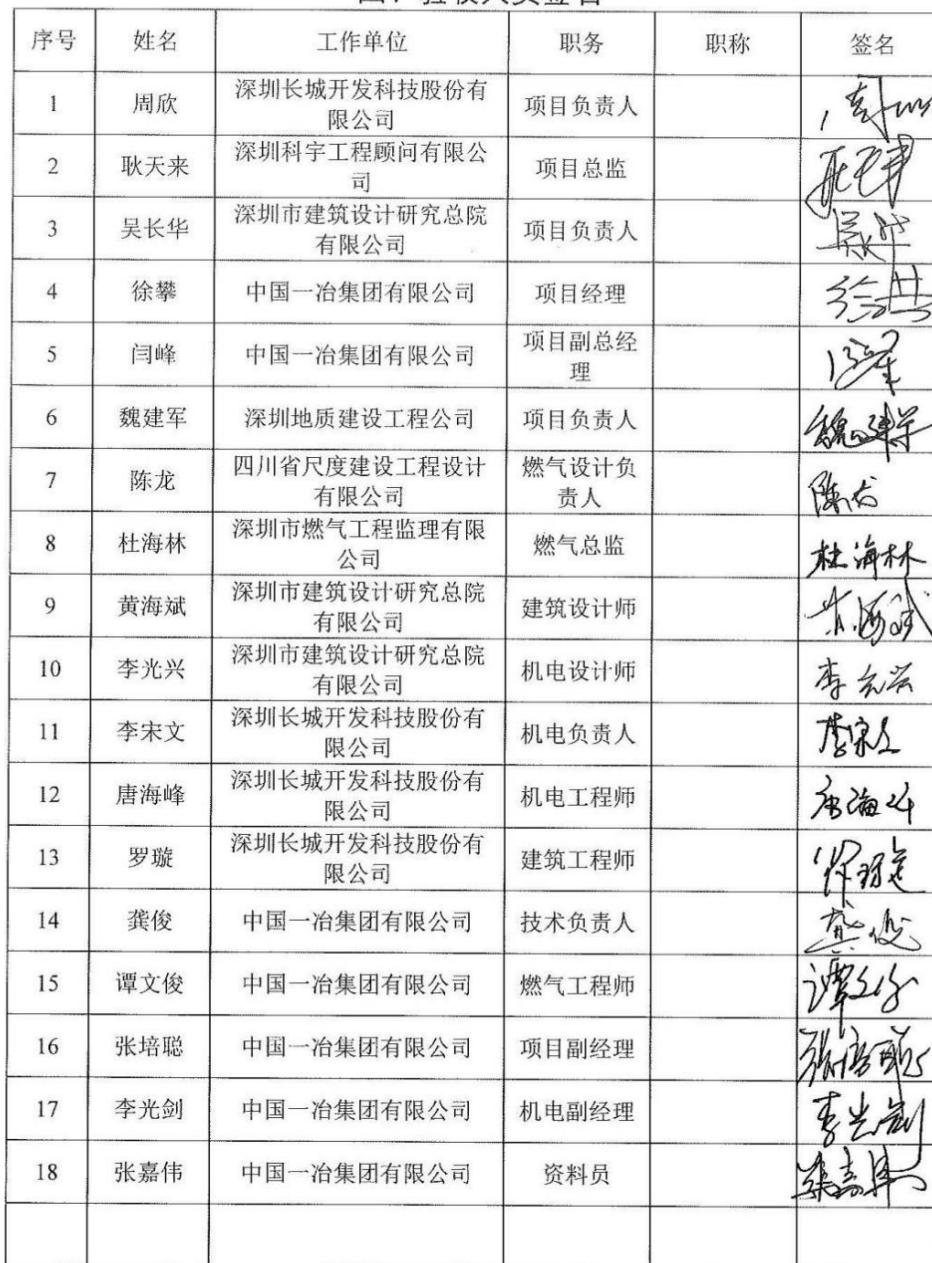 四、验收人员签名
序号 姓名 工作单位 职务 职称 签名
1 周欣 深圳长城开发科技股份有 项目负责人
限公司
2 耿天来 深圳科宇工程顾问有限公 项目总监
司
3 吴长华 深圳市建筑设计研究总院 项目负责人 吴长华
有限公司
4 徐攀 中国一冶集团有限公司 项目经理
5 闫峰 中国一冶集团有限公司 项目副总经
理
6 魏建军 深圳地质建设工程公司 项目负责人 魏建军
7 陈龙 四川省尺度建设工程设计 燃气设计负 陈龙
有限公司 责人
8 杜海林 深圳市燃气工程监理有限 燃气总监 杜海林
公司
9 黄海斌 深圳市建筑设计研究总院 建筑设计师 黄海斌
有限公司
10 李光兴 深圳市建筑设计研究总院 机电设计师 李光兴
有限公司
11 李宋文 深圳长城开发科技股份有 机电负责人 李宋文
限公司
12 唐海峰 深圳长城开发科技股份有 机电工程师 唐海峰
限公司
13 罗璇 深圳长城开发科技股份有 建筑工程师
限公司
14 龚俊 中国一冶集团有限公司 技术负责人 龚俊
15 谭文俊 中国一冶集团有限公司 燃气工程师 谭文俊
16 张培聪 中国一冶集团有限公司 项目副经理 张培聪
17 李光剑 中国一冶集团有限公司 机电副经理 李光剑
18 张嘉伟 中国一冶集团有限公司 资料员 张嘉伟